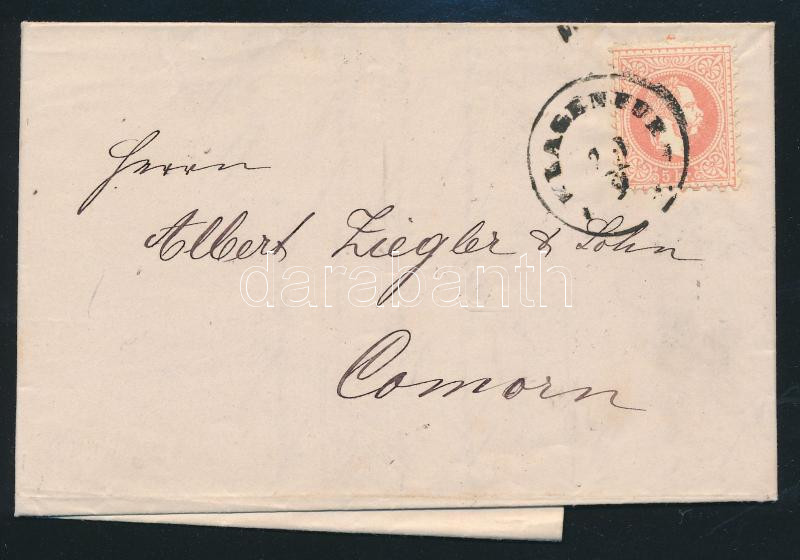 KLAGENFURT
5 K
Herrn
Albert Ziegler & Sohn
darabanth
Comorn